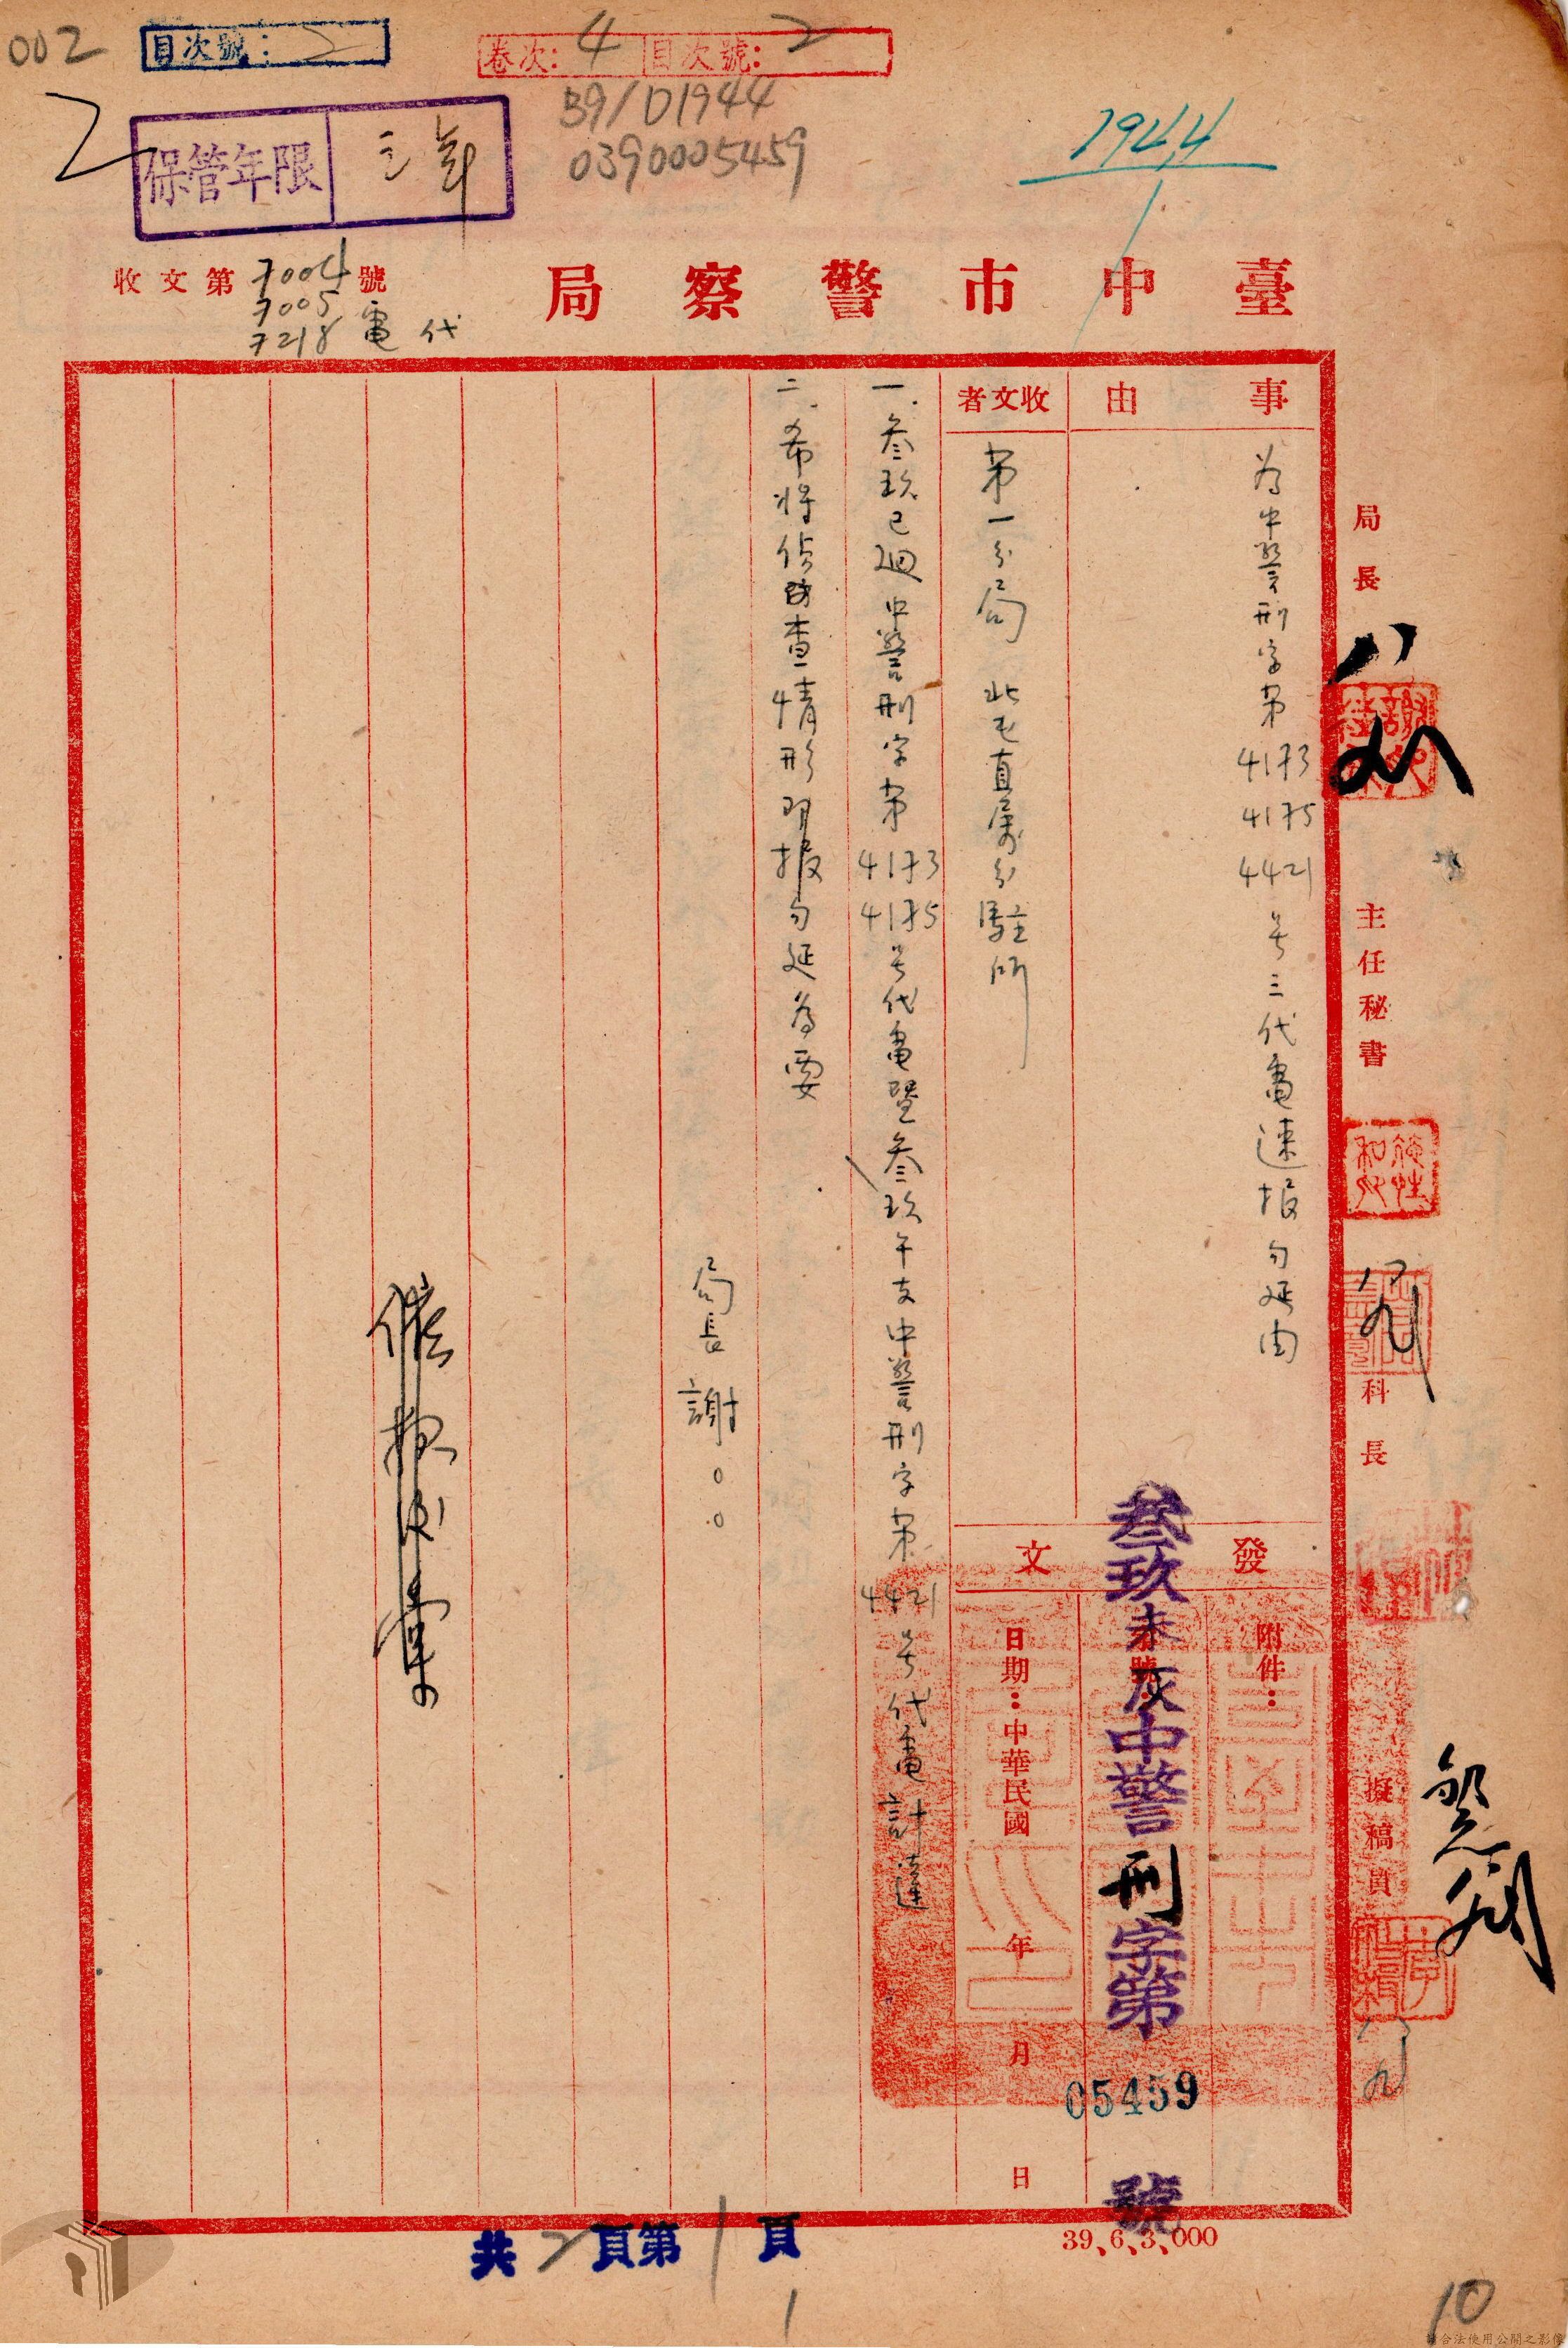 002
目次號：2
卷次：4 目次號：2
B9/D1944
0390005459
1944
保管年限 三年
臺中市警察局
代電
收文第 7004 7005 7218 號
事由
為中警刑字第4173 4175 4421号三代電速报勿延由
收文者
第一分局 北屯直属分駐所
發文
附件：
叁玖未灰中警刑字第05459號
日期：中華民國 年 月 日
一、叁玖巳迴中警刑字第4173 4175号代電暨叁玖午支中警刑字第4421号代電計達
二、希将偵查情形即报勿延為要
局長 謝○○
局長
主任秘書
科長
擬稿員
共2頁第1頁
39、6、3、000
1
10
請合法使用公開之影像